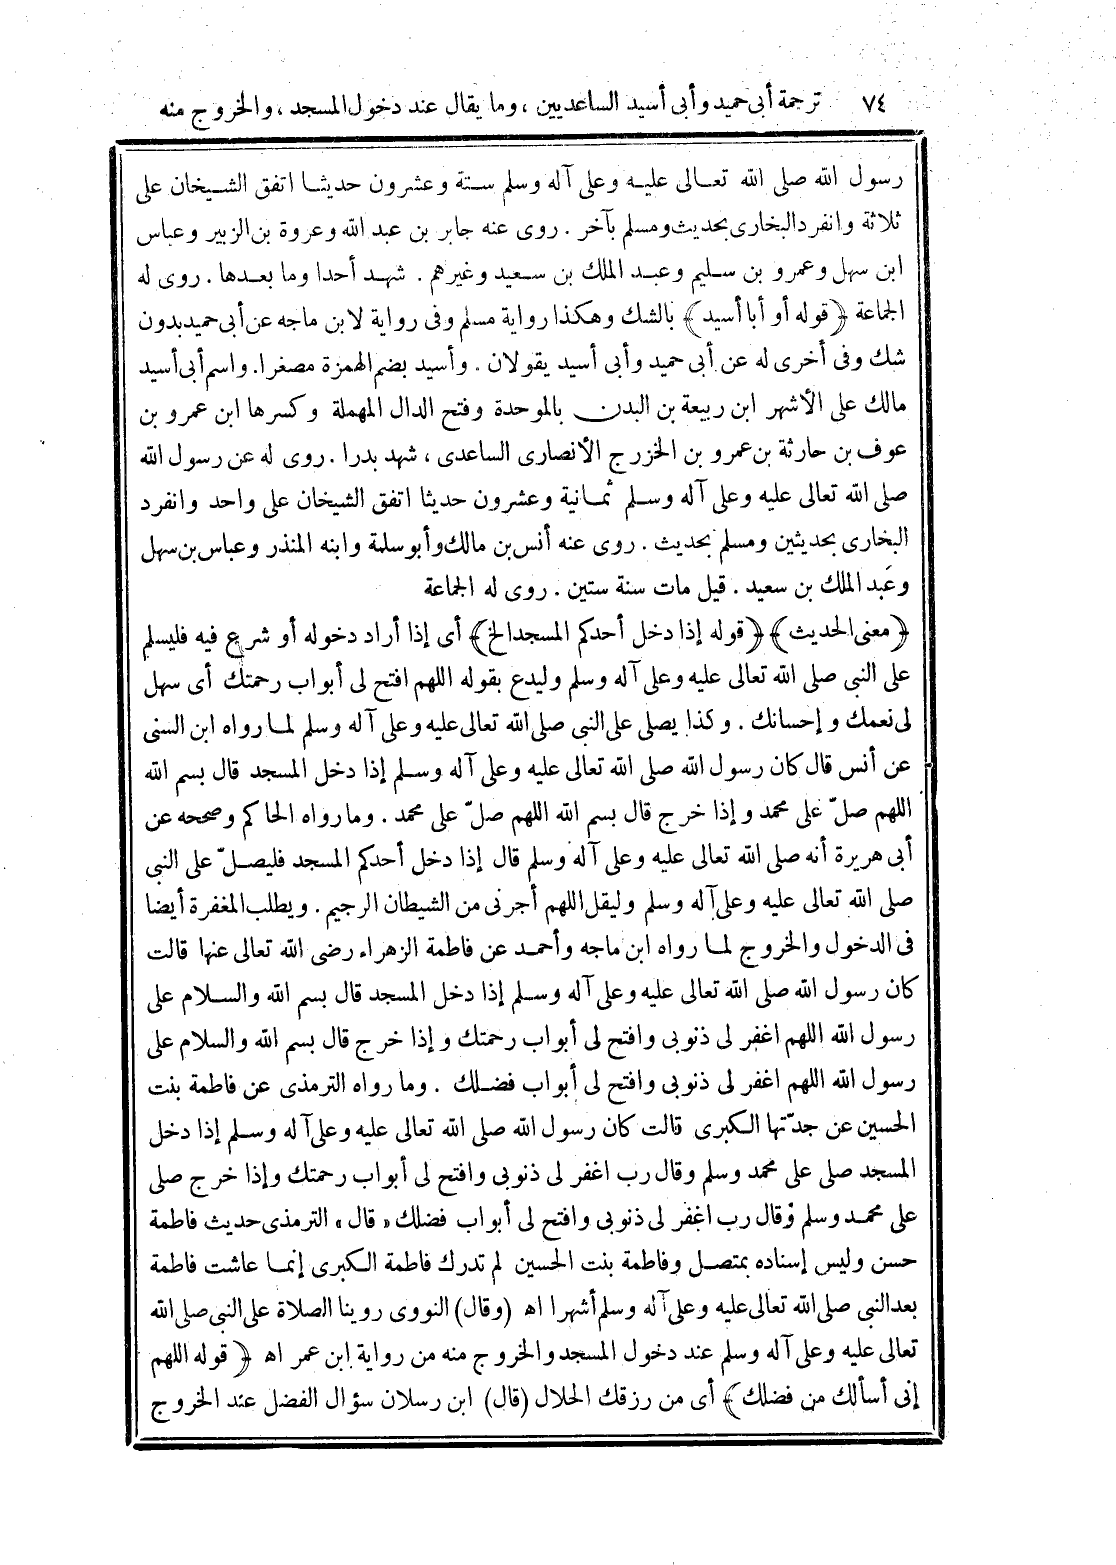 ٧٤ ترجمة أبى حميد وأبى أسيد الساعديين ، وما يقال عند دخول المسجد ، والخروج منه
رسول الله صلى الله تعالى عليه وعلى آله وسلم ستة وعشرون حديثا اتفق الشيخان على
ثلاثة وانفرد البخارى بحديث ومسلم بآخر . روى عنه جابر بن عبد الله وعروة بن الزبير وعباس
ابن سهل وعمرو بن سليم وعبد الملك بن سعيد وغيرهم . شهد أحدا وما بعدها . روى له
الجماعة ﴿قوله أو أبا أسيد﴾ بالشك وهكذا رواية مسلم وفى رواية لابن ماجه عن أبى حميد بدون
شك وفى أخرى له عن أبى حميد وأبى أسيد يقولان . وأسيد بضم الهمزة مصغرا. واسم أبى أسيد
مالك على الأشهر ابن ربيعة بن البدن بالموحدة وفتح الدال المهملة وكسرها ابن عمرو بن
عوف بن حارثة بن عمرو بن الخزرج الأنصارى الساعدى ، شهد بدرا . روى له عن رسول الله
صلى الله تعالى عليه وعلى آله وسلم ثمانية وعشرون حديثا اتفق الشيخان على واحد وانفرد
البخارى بحديثين ومسلم بحديث . روى عنه أنس بن مالك وأبو سلمة وابنه المنذر وعباس بن سهل
وعبد الملك بن سعيد . قيل مات سنة ستين . روى له الجماعة
﴿معنى الحديث﴾ ﴿قوله إذا دخل أحدكم المسجد الخ﴾ أى إذا أراد دخوله أو شرع فيه فليسلم
على النبى صلى الله تعالى عليه وعلى آله وسلم وليدع بقوله اللهم افتح لى أبواب رحمتك أى سهل
لى نعمك وإحسانك . وكذا يصلى على النبى صلى الله تعالى عليه وعلى آله وسلم لما رواه ابن السنى
عن أنس قال كان رسول الله صلى الله تعالى عليه وعلى آله وسلم إذا دخل المسجد قال بسم الله
اللهم صلّ على محمد وإذا خرج قال بسم الله اللهم صلّ على محمد . وما رواه الحاكم وصححه عن
أبى هريرة أنه صلى الله تعالى عليه وعلى آله وسلم قال إذا دخل أحدكم المسجد فليصلّ على النبى
صلى الله تعالى عليه وعلى آله وسلم وليقل اللهم أجرنى من الشيطان الرجيم . ويطلب المغفرة أيضا
فى الدخول والخروج لما رواه ابن ماجه وأحمد عن فاطمة الزهراء رضى الله تعالى عنها قالت
كان رسول الله صلى الله تعالى عليه وعلى آله وسلم إذا دخل المسجد قال بسم الله والسلام على
رسول الله اللهم اغفر لى ذنوبى وافتح لى أبواب رحمتك وإذا خرج قال بسم الله والسلام على
رسول الله اللهم اغفر لى ذنوبى وافتح لى أبواب فضلك . وما رواه الترمذى عن فاطمة بنت
الحسين عن جدّتها الكبرى قالت كان رسول الله صلى الله تعالى عليه وعلى آله وسلم إذا دخل
المسجد صلى على محمد وسلم وقال رب اغفر لى ذنوبى وافتح لى أبواب رحمتك وإذا خرج صلى
على محمد وسلم وقال رب اغفر لى ذنوبى وافتح لى أبواب فضلك «قال» الترمذى حديث فاطمة
حسن وليس إسناده بمتصل وفاطمة بنت الحسين لم تدرك فاطمة الكبرى إنما عاشت فاطمة
بعد النبى صلى الله تعالى عليه وعلى آله وسلم أشهرا اه (وقال) النووى روينا الصلاة على النبى صلى الله
تعالى عليه وعلى آله وسلم عند دخول المسجد والخروج منه من رواية ابن عمر اه ﴿قوله اللهم
إنى أسألك من فضلك﴾ أى من رزقك الحلال (قال) ابن رسلان سؤال الفضل عند الخروج